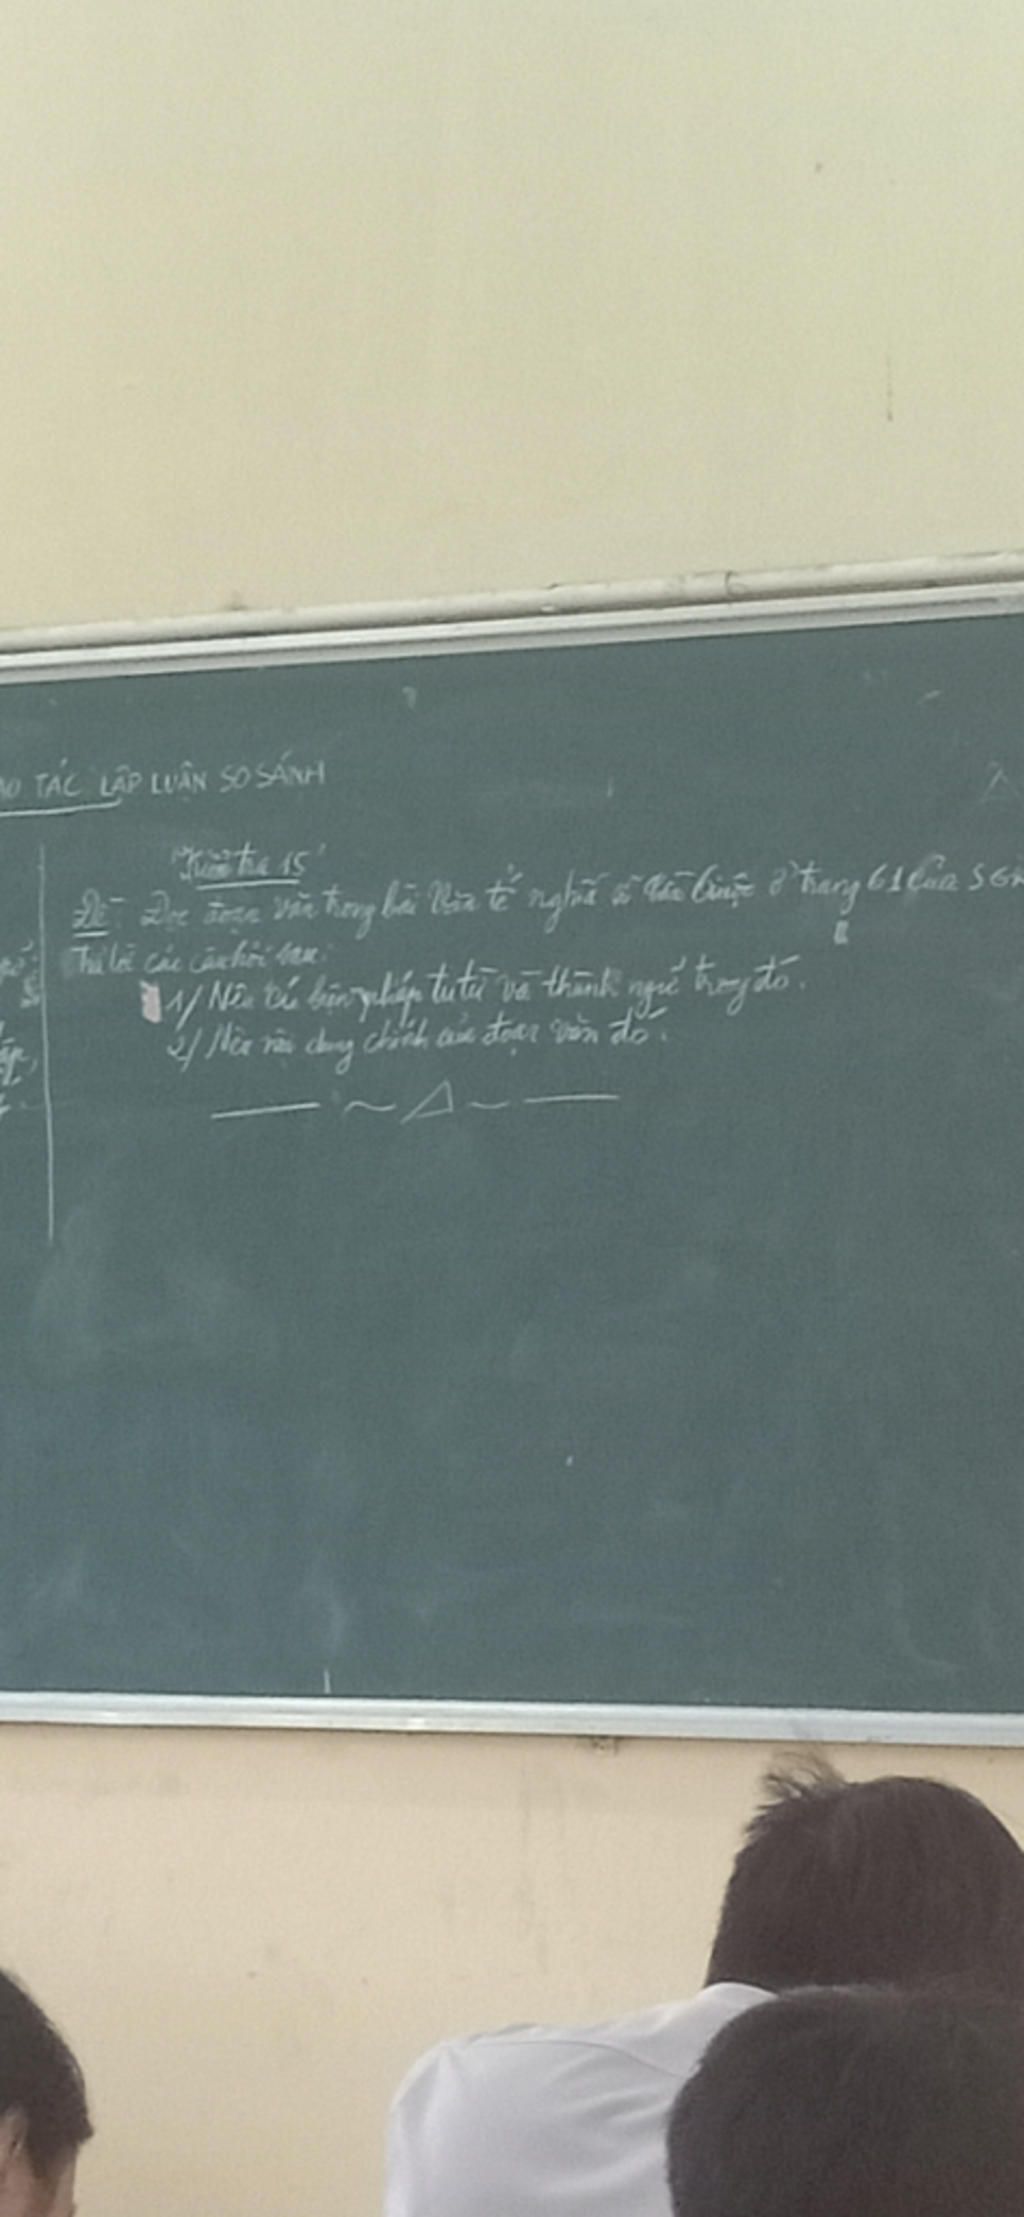 TÁC LẬP LUẬN SO SÁNH
Kiểm tra 15'
Đề: Đọc đoạn văn trong bài Văn tế nghĩa sĩ Cần Giuộc ở trang 61 của SGK
Trả lời các câu hỏi sau:
1/ Nêu các biện pháp tu từ và thành ngữ trong đó.
2/ Nêu nội dung chính của đoạn văn đó.